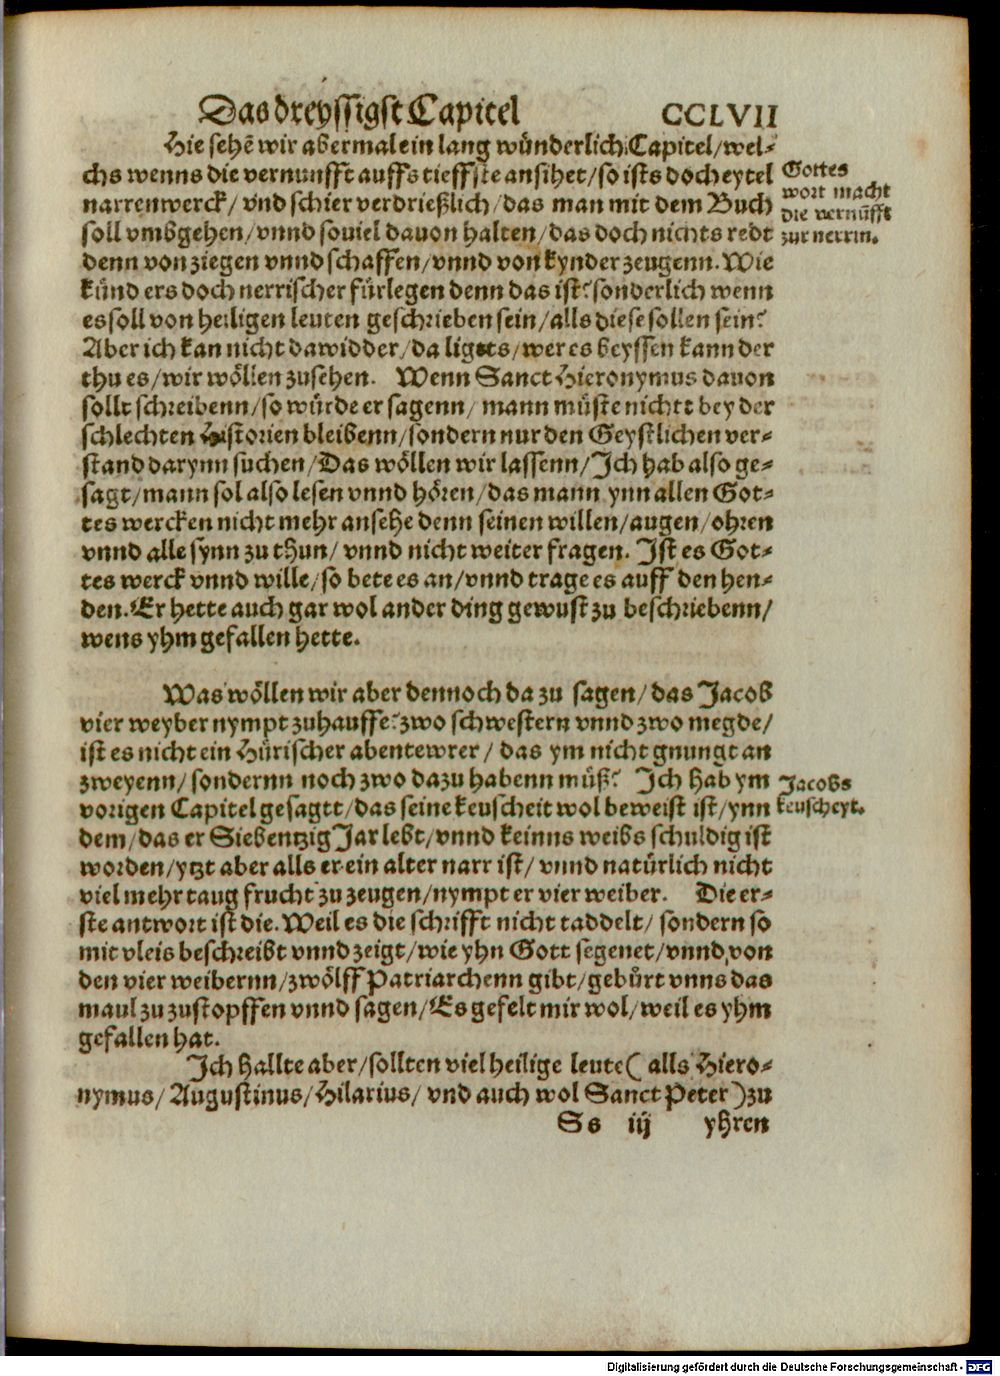 Das dreyssigst Capitel CCLVII
Hie sehẽ wir abermal ein lang wünderlich Capitel/wel-
chs wenns die vernunfft auffs tieffste ansihet/so ists doch eytel
narrenwerck/ vnd schier verdrießlich/das man mit dem Buch
soll vmbgehen/vnnd souiel dauon halten/das doch nichts redt
denn von ziegen vnnd schaffen/vnnd von kynder zeugenn. Wie
künd ers doch nerrischer fürlegen denn das ist? sonderlich wenn
es soll von heiligen leuten geschrieben sein/alls diese sollen sein?
Aber ich kan nicht dawidder/da ligets/wer es beyssen kann der
thu es/wir wöllen zusehen. Wenn Sanct Hieronymus dauon
sollt schreibenn/so würde er sagenn/ mann müste nichtt bey der
schlechten Historien bleibenn/sondern nur den Geystlichen ver-
stand darynn suchen/Das wöllen wir lassenn/Ich hab also ge-
sagt/mann sol also lesen vnnd hören/das mann ynn allen Got-
tes wercken nicht mehr ansehe denn seinen willen/augen/ohren
vnnd alle synn zu thun/ vnnd nicht weiter fragen. Ist es Got-
tes werck vnnd wille/so bete es an/vnnd trage es auff den hen-
den. Er hette auch gar wol ander ding gewust zu beschriebenn/
wens yhm gefallen hette.
Gottes
wort macht
die vernũfft
zur nerrin.
Was wöllen wir aber dennoch da zu sagen/das Jacob
vier weyber nympt zuhauffe? zwo schwestern vnnd zwo megde/
ist es nicht ein Hürischer abentewrer/ das ym nicht gnungt an
zweyenn/sondernn noch zwo dazu habenn müß? Ich hab ym
vorigen Capitel gesagtt/das seine keuscheit wol beweist ist/ynn
dem/das er Siebentzig Jar lebt/vnnd keinns weibs schuldig ist
worden/ytzt aber alls er ein alter narr ist/ vnnd natürlich nicht
viel mehr taug frucht zu zeugen/nympt er vier weiber. Die er-
ste antwort ist die. Weil es die schrifft nicht taddelt/ sondern so
mit vleis beschreibt vnnd zeigt/wie yhn Gott segenet/vnnd von
den vier weibernn/zwölff Patriarchenn gibt/gebürt vnns das
maul zu zustopffen vnnd sagen/Es gefelt mir wol/weil es yhm
gefallen hat.
Jacobs
keuscheyt.
Ich hallte aber/sollten viel heilige leute( alls Hiero-
nymus/ Augustinus/Hilarius/ vnd auch wol Sanct Peter)zu
Ss iij yhren
Digitalisierung gefördert durch die Deutsche Forschungsgemeinschaft - DFG